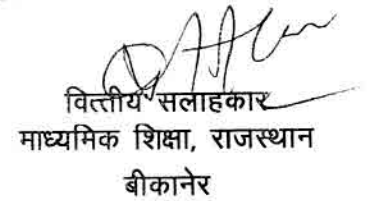 वित्तीय सलाहकार
माध्यमिक शिक्षा, राजस्थान
बीकानेर